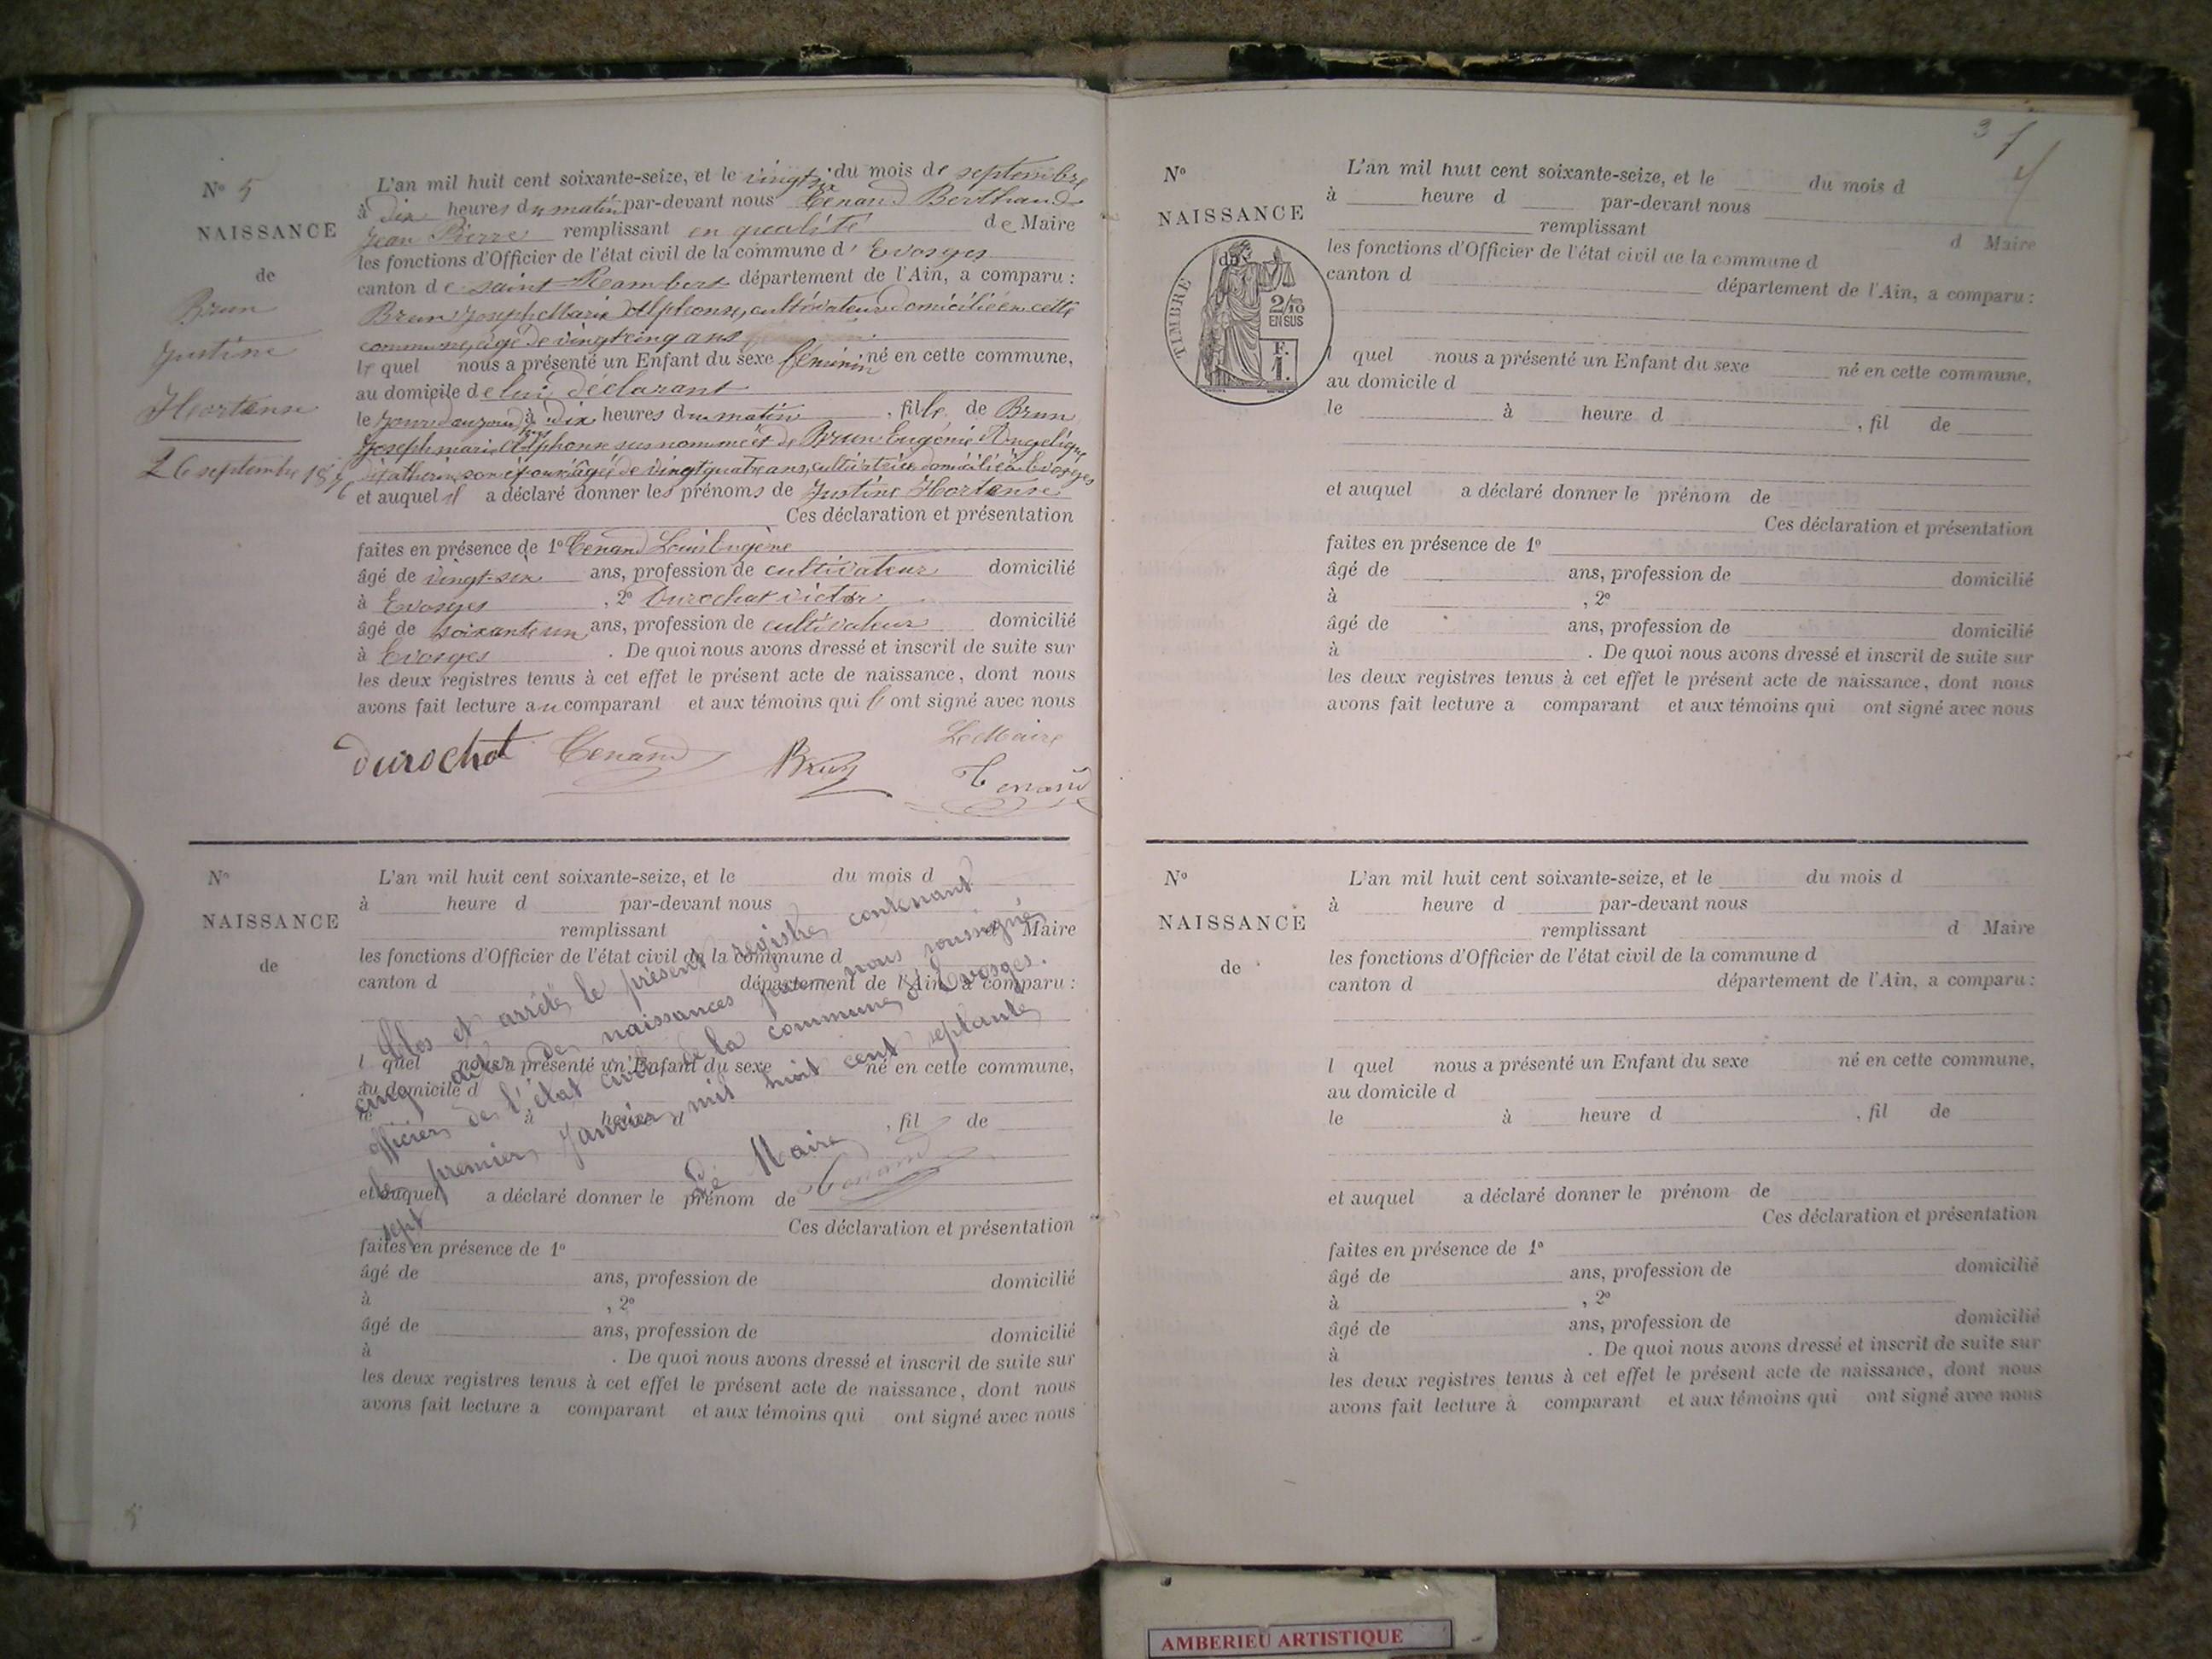 N° 5
NAISSANCE
de
Brun
Justine
Hortense
26 septembre 1876
L'an mil huit cent soixante-seize, et le vingt six du mois de septembre
à dix heures du matin par-devant nous Tenand Berthand
Jean Pierre remplissant en qualité de Maire
les fonctions d'Officier de l'état civil de la commune d'Evosges
canton de saint Rambert département de l'Ain, a comparu :
Brun Joseph Marie Alphonse, cultivateur domicilié en cette
commune, âgé de vingt cinq ans
lequel nous a présenté un Enfant du sexe féminin né en cette commune,
au domicile de lui déclarant
le jour d'aujourd'hui à dix heures du matin, fille de Brun
Joseph marie Alphonse susnommé et de Brun Eugénie Angelique
Catherine son épouse âgée de vingt quatre ans, cultivatrice domiciliée à Evosges
et auquel il a déclaré donner les prénoms de Justine Hortense
Ces déclaration et présentation
faites en présence de 1° Tenand Louis Eugène
âgé de vingt-six ans, profession de cultivateur domicilié
à Evosges, 2° Durochat victor
âgé de soixante un ans, profession de cultivateur domicilié
à Evosges. De quoi nous avons dressé et inscrit de suite sur
les deux registres tenus à cet effet le présent acte de naissance, dont nous
avons fait lecture au comparant et aux témoins qui l'ont signé avec nous
Durochat Tenand Brun Le Maire
Tenand
N°
NAISSANCE
de
L'an mil huit cent soixante-seize, et le du mois d
à heure d par-devant nous
remplissant d Maire
les fonctions d'Officier de l'état civil de la commune d
canton d département de l'Ain, a comparu :
l quel nous a présenté un Enfant du sexe né en cette commune,
au domicile d
le à heure d , fil de
et auquel a déclaré donner le prénom de
Ces déclaration et présentation
faites en présence de 1°
âgé de ans, profession de domicilié
à , 2°
âgé de ans, profession de domicilié
à . De quoi nous avons dressé et inscrit de suite sur
les deux registres tenus à cet effet le présent acte de naissance, dont nous
avons fait lecture a comparant et aux témoins qui ont signé avec nous
Clos et arrêté le présent registre contenant
cinq actes de naissances par nous soussigné
officier de l'état civil de la commune d'Evosges.
le premier Janvier mil huit cent septante
sept
Le Maire
Tenand
5
3
4
N°
NAISSANCE
de
TIMBRE
2/10
EN SUS
F.
1.
L'an mil huit cent soixante-seize, et le du mois d
à heure d par-devant nous
remplissant d Maire
les fonctions d'Officier de l'état civil de la commune d
canton d département de l'Ain, a comparu :
l quel nous a présenté un Enfant du sexe né en cette commune,
au domicile d
le à heure d , fil de
et auquel a déclaré donner le prénom de
Ces déclaration et présentation
faites en présence de 1°
âgé de ans, profession de domicilié
à , 2°
âgé de ans, profession de domicilié
à . De quoi nous avons dressé et inscrit de suite sur
les deux registres tenus à cet effet le présent acte de naissance, dont nous
avons fait lecture a comparant et aux témoins qui ont signé avec nous
N°
NAISSANCE
de
L'an mil huit cent soixante-seize, et le du mois d
à heure d par-devant nous
remplissant d Maire
les fonctions d'Officier de l'état civil de la commune d
canton d département de l'Ain, a comparu :
l quel nous a présenté un Enfant du sexe né en cette commune,
au domicile d
le à heure d , fil de
et auquel a déclaré donner le prénom de
Ces déclaration et présentation
faites en présence de 1°
âgé de ans, profession de domicilié
à , 2°
âgé de ans, profession de domicilié
à . De quoi nous avons dressé et inscrit de suite sur
les deux registres tenus à cet effet le présent acte de naissance, dont nous
avons fait lecture à comparant et aux témoins qui ont signé avec nous
AMBERIEU ARTISTIQUE